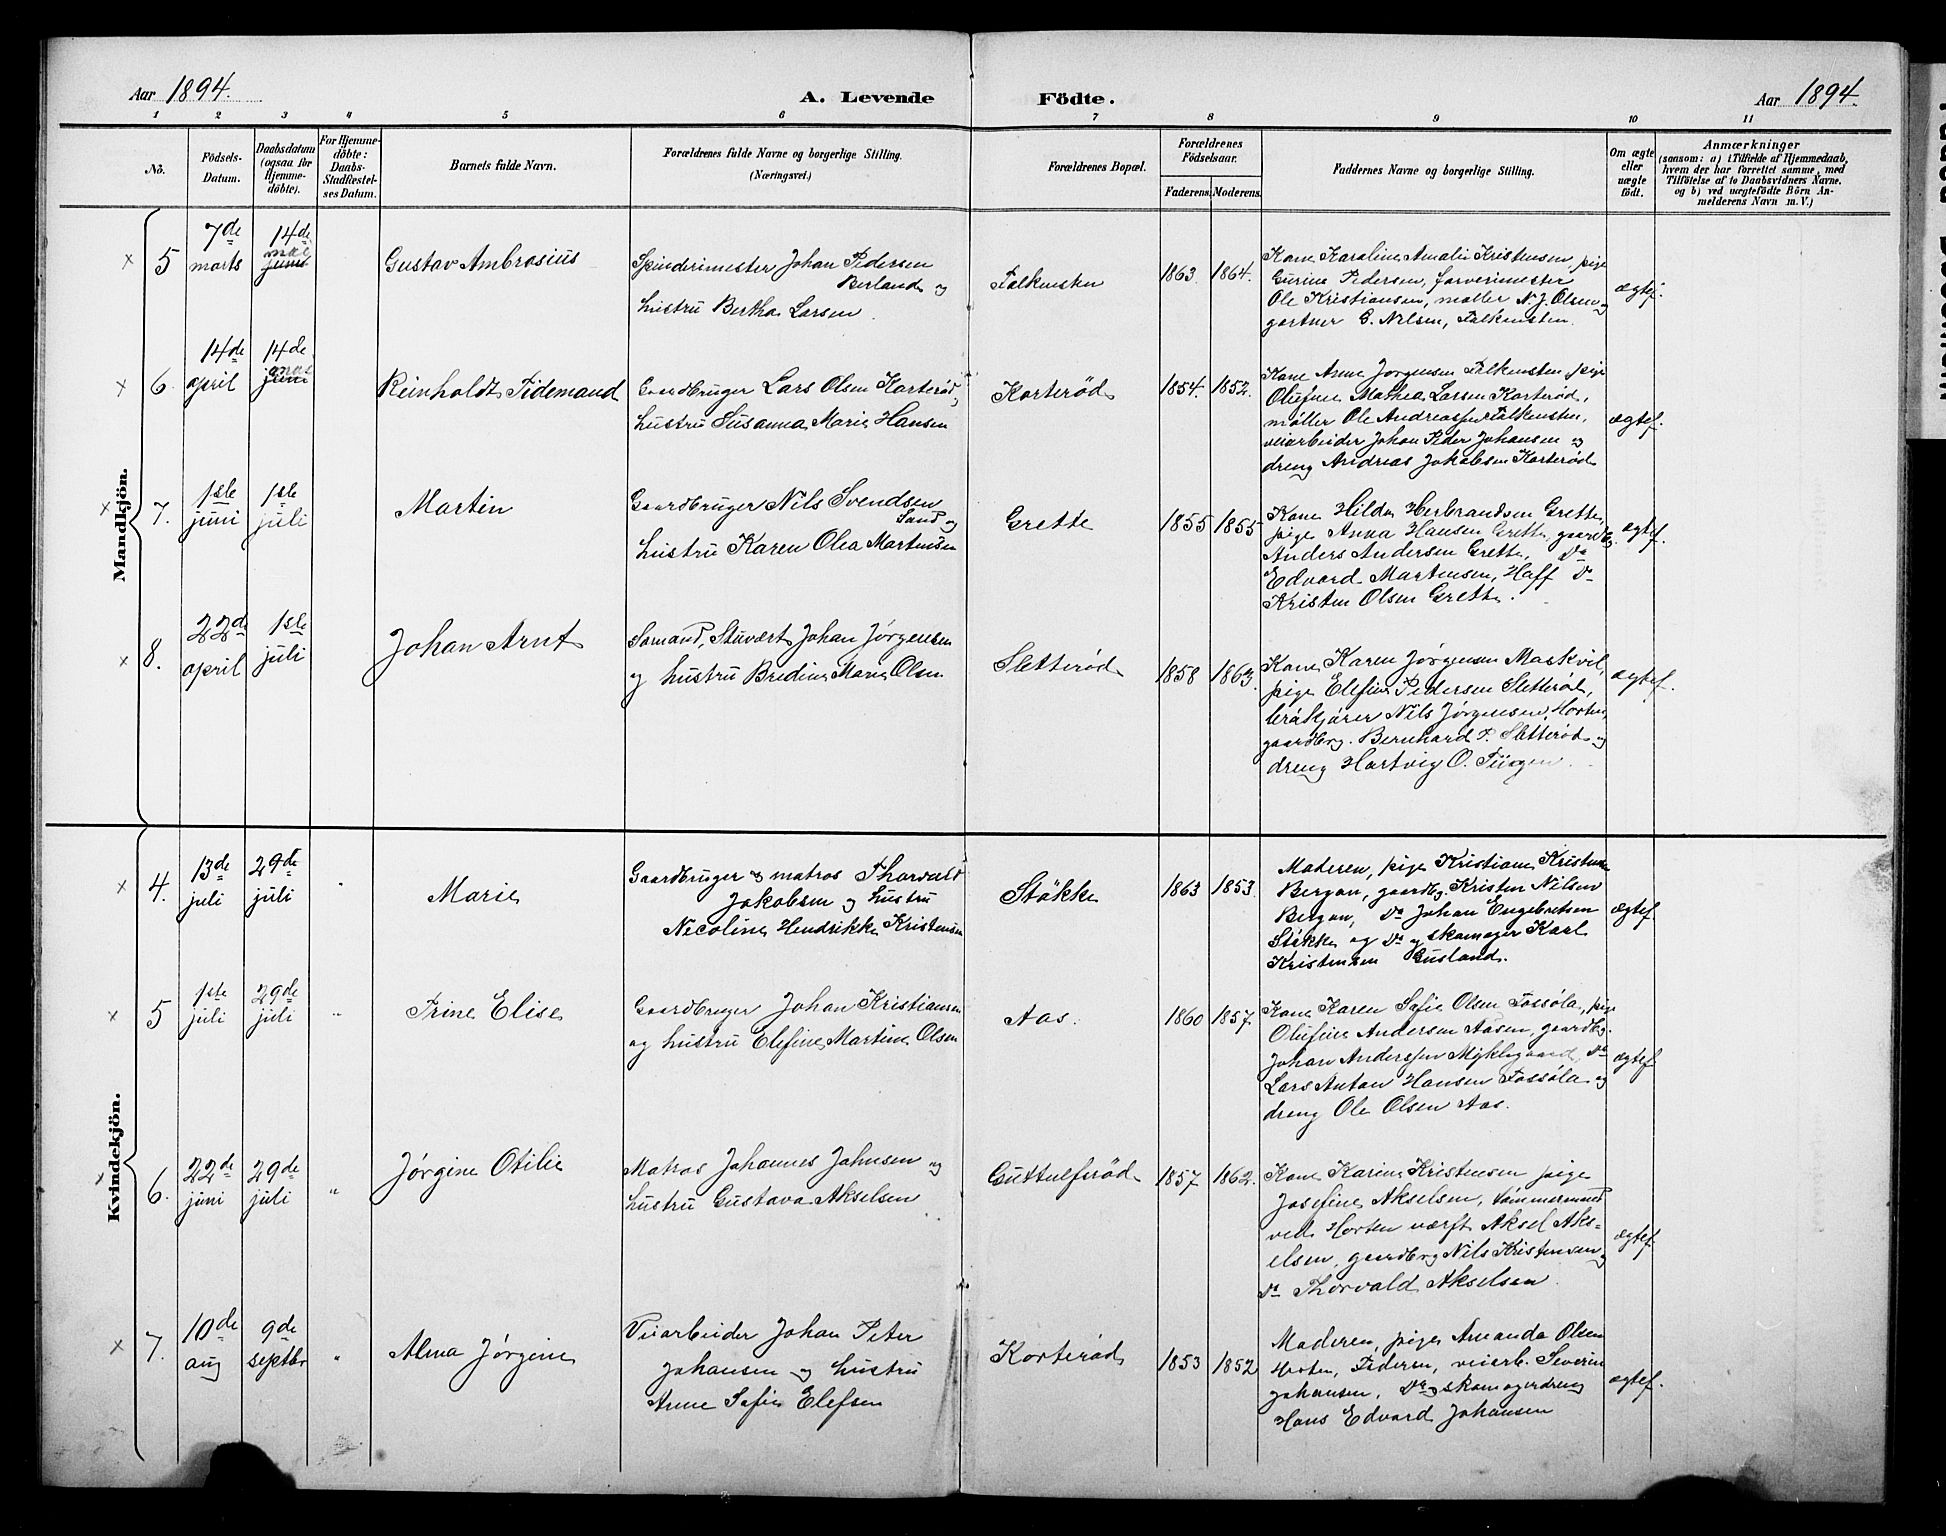 Aar 1894.
A. Levende Födte.
Aar 1894.
1 2 3 4 5 6 7 8 9 10 11
No.
Födsels-
Datum.
Daabsdatum
(ogsaa for
Hjemme-
döbte).
For Hjemme-
döbte:
Daabs-
Stadfæstel-
ses Datum.
Barnets fulde Navn.
Forældrenes fulde Navne og borgerlige Stilling.
(Næringsvei.)
Forældrenes Bopæl.
Forældrenes
Födselsaar.
Faderens. Moderens.
Faddernes Navne og borgerlige Stilling.
Om ægte
eller
uægte
födt.
Anmærkninger
(saasom: a) i Tilfælde af Hjemmedaab,
hvem der har forrettet samme, med
Tilföielse af to Daabsvidners Navne,
og b) ved uægtefödte Börn An-
melderens Navn m. V.)
Mandkjön.
× 5
7de
marts
14de
mai
juni
Gustav Ambrosius
Spinderimester Johan Pedersen
Berland og
hustru Bertha Larsen
Falkensten
1863 1864.
Kone Karoline Amalie Kristensen, pige
Gurine Pedersen, farverimester
Ole Kristiansen, møller N. J. Olsen og
gartner G. Nilsen, Falkensten.
ægtef.
× 6
14de
april
14de
mai
juni
Reinholdt Tidemand
Gaardbruger Lars Olsen Korterød,
hustru Susanna Marie Hansen
Korterød
1854. 1852.
Kone Anne Jørgensen Falkensten, pige
Olufine Mathea Larsen Korterød,
møller Ole Andreassen Falkensten,
veiarbeider Johan Peder Johansen og
dreng Andreas Jakobsen Korterød
ægtef.
× 7.
1ste
juni
1ste
juli
Martin
Gaardbruger Nils Svendsen
Sand og
hustru Karen Olea Martinsen
Grette
1855 1855
Kone Hilda Herbrandsen Grette,
pige Anna Hansen Grette, gaardbg.
Anders Andersen Grette, Do
Edvard Martensen, Haff Do
Kristen Olsen Grette.
ægtef.
× 8.
22de
april
1ste
juli
Johan Arnt
Sømand, Stuvert Johan Jørgensen
og hustru Bredine Marie Olsen
Sletterød
1858 1863.
Kone Karen Jørgensen Maskvil,
pige Elefine Pedersen Sletterød,
Nils Jørgensen, Horten,
gaardbrg. Bernhard P. Sletterød og
dreng Hartvig O.
ægtef.
Kvindekjön.
× 4.
13de
juli
29de
juli
"
Marie
Gaardbruger & matros Thorvald
Jakobsen og hustru
Nicoline Hendrikke Kristensen
Støkke
1863 1853.
Moderen, pige Kristiane Kristensen
Bergan, gaardbg. Kristen Nilsen
Bergan, Do Johan Engebretsen
Støkke og Do og skomager Karl
Kristensen Gusland.
ægtef.
× 5
1ste
juli
29de
juli
"
Trine Elise
Gaardbruger Johan Kristiansen
og hustru Elefine Martine Olsen
Aas.
1860 1857.
Kone Karen Sofie Olsen Fossøla, pige
Olufine Andersen Aasen, gaardbg.
Johan Anderssen Myklegaard, Do
Lars Anton Hansen Fossøla og
dreng Ole Olsen Aas.
ægtef.
× 6.
22de
juni
29de
juli
"
Jørgine Otilie
Matros Johannes Johnsen og
hustru Gustava Akselsen
Guttulfsrød
1857 1862.
Kone Karine Kristensen pige
Josefine Akselsen, tømmermand
ved Horten værft Aksel Aks-
elsen, gaardbrg Nils Kristensen og
Do Thorvald Akselsen.
ægtef.
× 7.
10de
aug
9de
septbr
"
Alma Jørgine
Veiarbeider Johan Peter
Johansen og hustru
Anne Sofie Elefsen
Korterød
1853 1852
Moderen, pige Amanda Olsen
Horten, Pedersen, veiarb. Severin
Johansen, Do og skomagerdreng
Hans Edvard Johansen
ægtef.